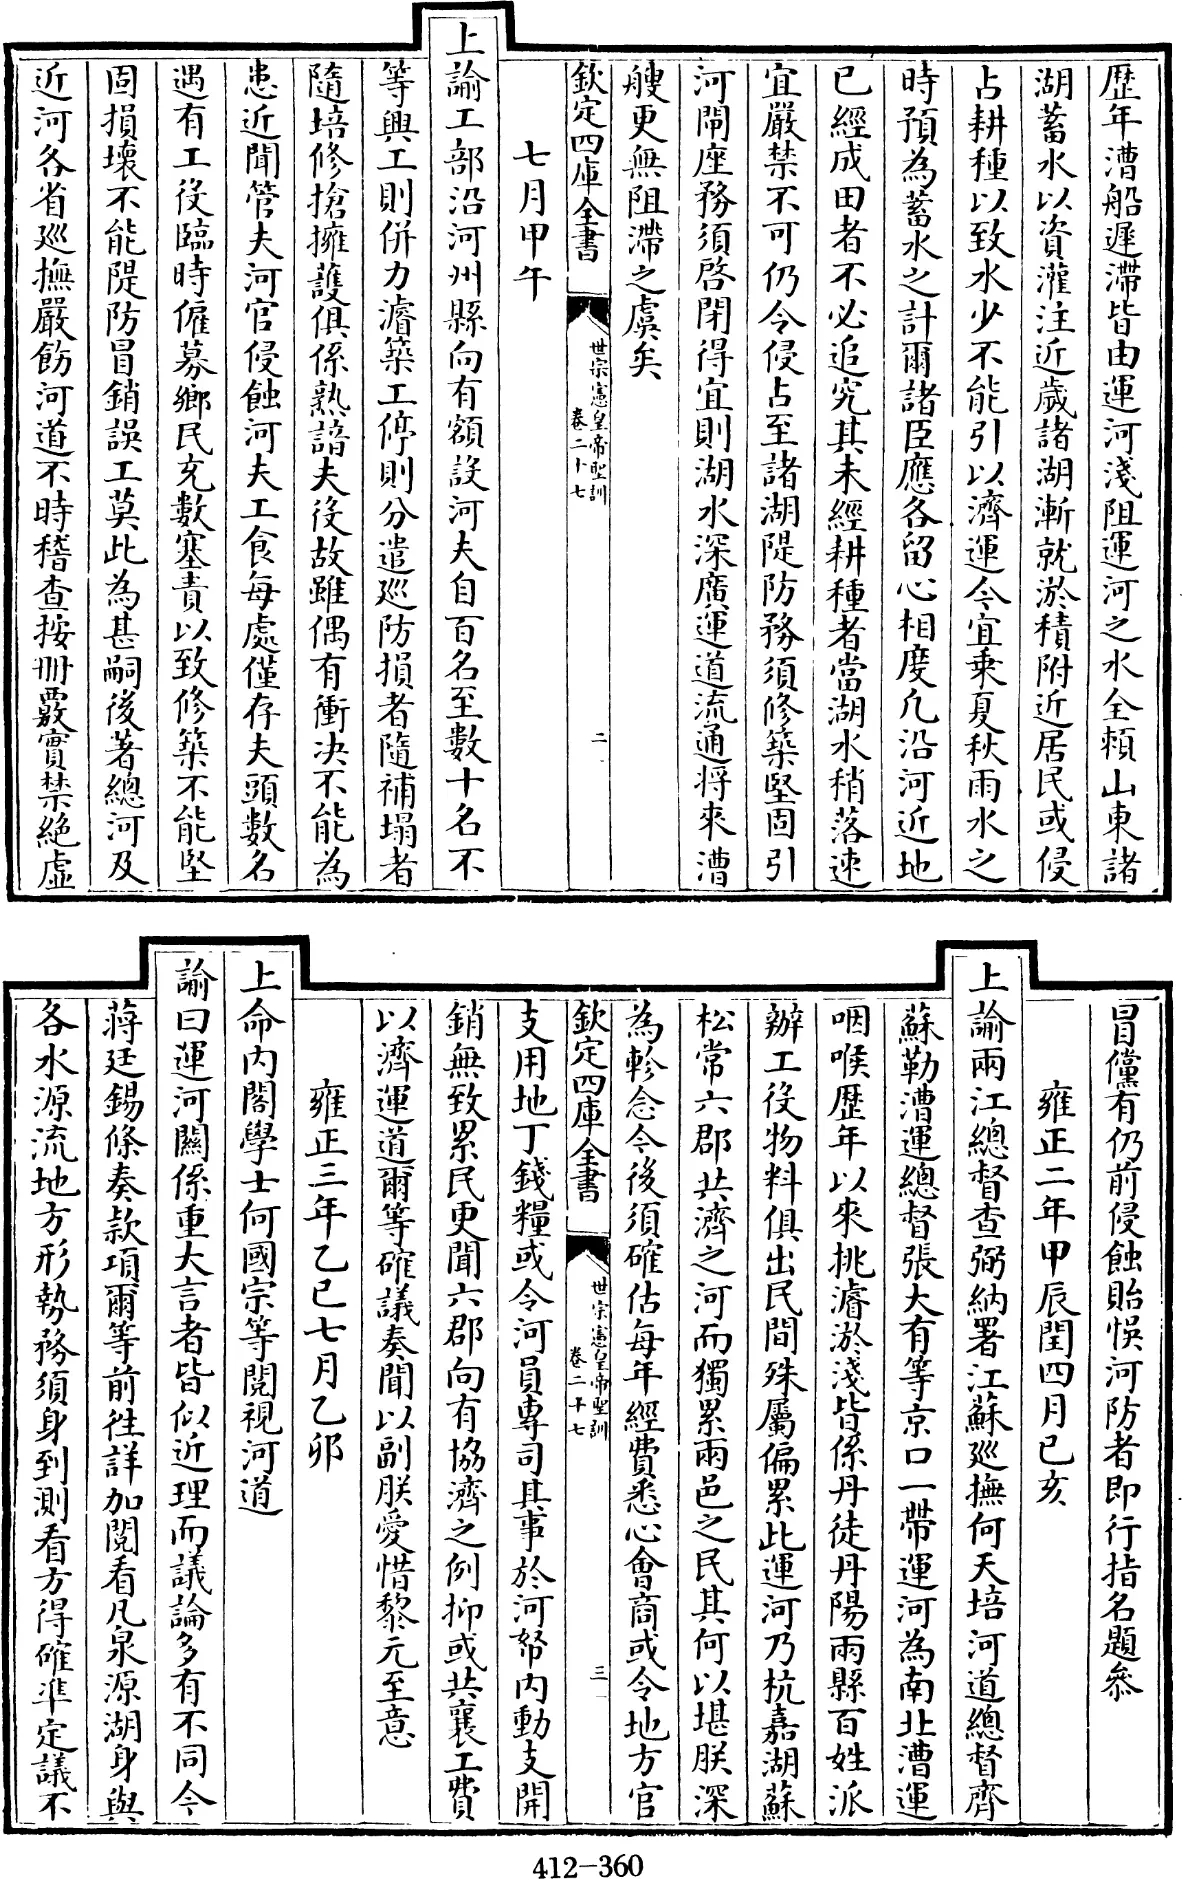 歴年漕船遲滯皆由運河淺阻運河之水全頼山東諸
湖蓄水以資灌注近歲諸湖漸就淤積附近居民或侵
占耕種以致水少不能引以濟運今宜乘夏秋雨水之
時預為蓄水之計爾諸臣應各留心相度凢沿河近地
已經成田者不必追究其未經耕種者當湖水稍落速
宜嚴禁不可仍令侵占至諸湖隄防務須修築堅固引
河閘座務須啓閉得宜則湖水深廣運道流通将來漕
艘更無阻滯之虞矣
欽定四庫全書
世宗憲皇帝聖訓
卷二十七
二
七月甲午
上諭工部沿河州縣向有額設河夫自百名至數十名不
等興工則併力濬築工停則分遣巡防損者隨補塌者
隨培修搶擁護俱係熟諳夫役故雖偶有衝决不能為
患近聞管夫河官侵蝕河夫工食每處僅存夫頭數名
遇有工役臨時僱募鄉民充數塞責以致修築不能堅
固損壞不能隄防冒銷誤工莫此為甚嗣後著總河及
近河各省巡撫嚴飭河道不時稽查按冊覈實禁絶虛
冒儻有仍前侵蝕貽悞河防者即行指名題叅
雍正二年甲辰閏四月己亥
上諭兩江總督查弼納署江蘇巡撫何天培河道總督齊
蘇勒漕運總督張大有等京口一帶運河為南北漕運
咽喉歴年以來挑濬淤淺皆係丹徒丹陽兩縣百姓派
辦工役物料俱出民間殊屬偏累此運河乃杭嘉湖蘇
松常六郡共濟之河而獨累兩邑之民其何以堪朕深
為軫念今後須確估每年經費悉心會商或令地方官
欽定四庫全書
世宗憲皇帝聖訓
卷二十七
三
支用地丁錢糧或令河員專司其事於河帑内動支開
銷無致累民更聞六郡向有協濟之例抑或共襄工費
以濟運道爾等確議奏聞以副朕愛惜黎元至意
雍正三年乙巳七月乙卯
上命内閣學士何國宗等閱視河道
諭曰運河關係重大言者皆似近理而議論多有不同今
蔣廷錫條奏款項爾等前徃詳加閱看凡泉源湖身與
各水源流地方形勢務須身到測看方得確準定議不
412-360